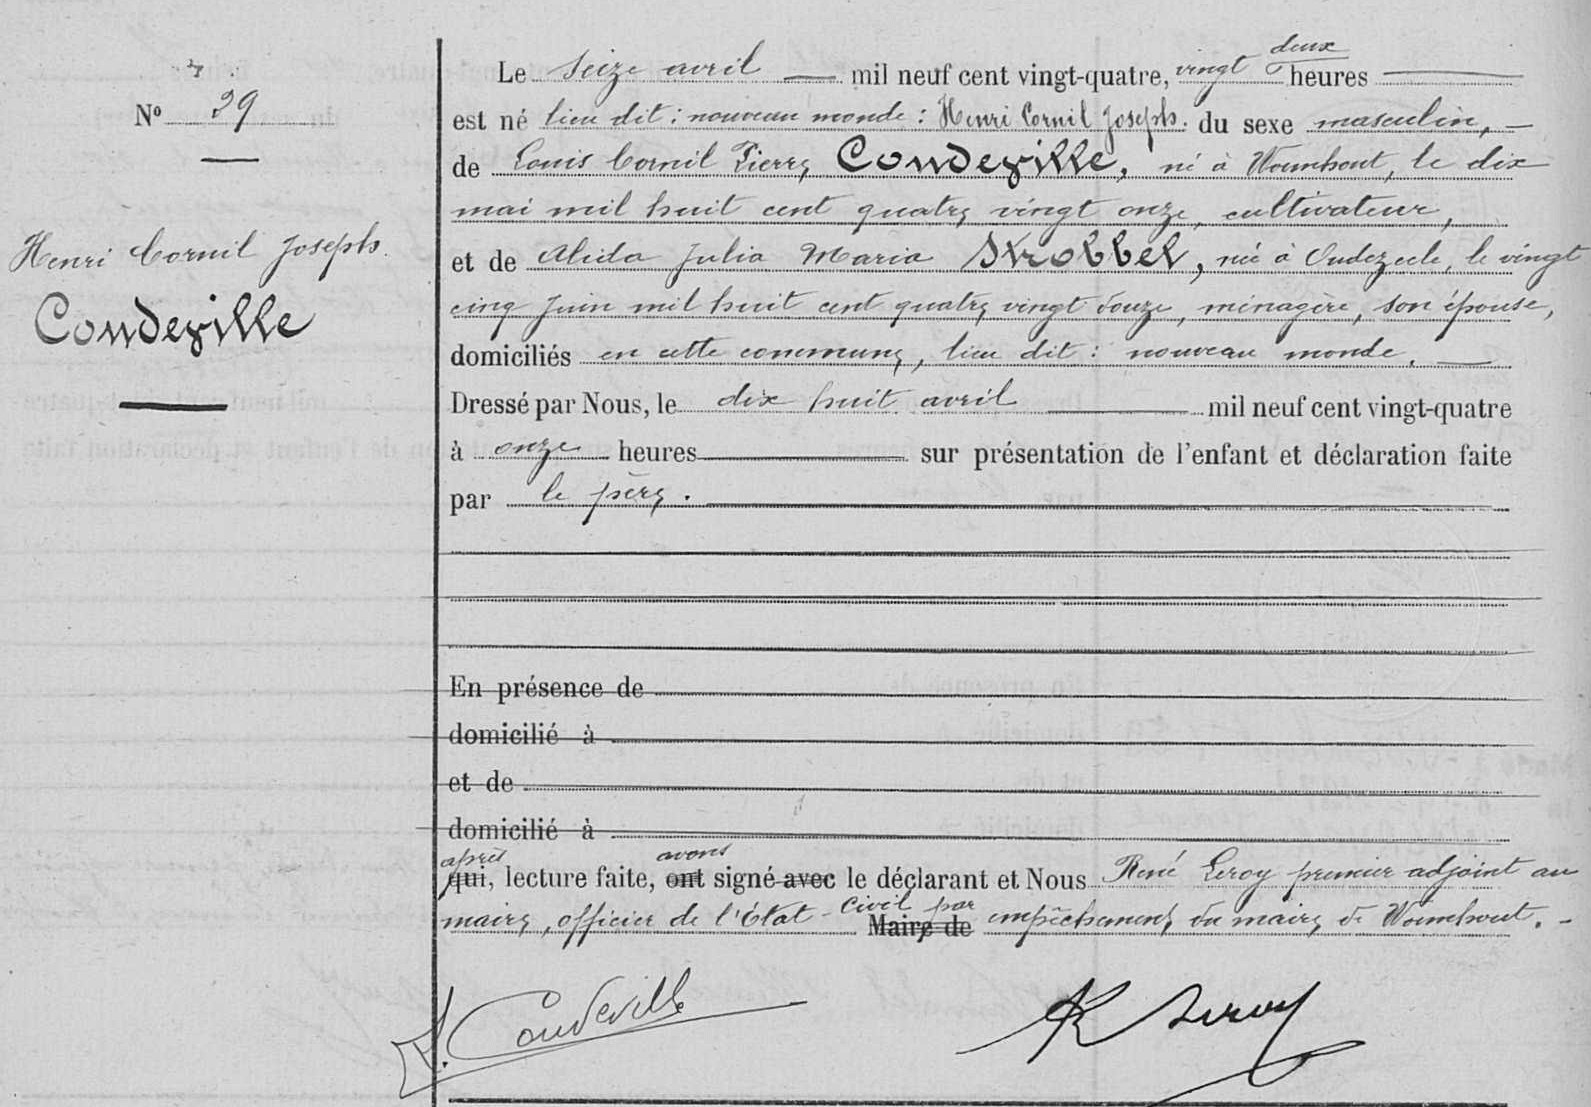 Nº 39
Henri Cornil Joseph.
Coudeville
Le seize avril mil neuf cent vingt-quatre, vingt deux heures
est né lieu dit : nouveau monde : Henri Cornil Joseph. du sexe masculin,
de Louis Cornil Pierre Coudeville, né à Wormhout, le dix
mai mil huit cent quatre vingt onze, cultivateur,
et de Alida Julia Maria Strobbel, née à Oudezeele, le vingt
cinq Juin mil huit cent quatre vingt douze, ménagère, son épouse,
domiciliés en cette commune, lieu dit : nouveau monde.
Dressé par Nous, le dix huit avril mil neuf cent vingt-quatre
à onze heures sur présentation de l'enfant et déclaration faite
par le père.
En présence de
domicilié à
et de
domicilié à
après avons
qui, lecture faite, ont signé avec le déclarant et Nous René Leroy premier adjoint au
maire, officier de l'Etat-Civil par Maire de empêchement du maire de Wormhout.
Coudeville R Leroy